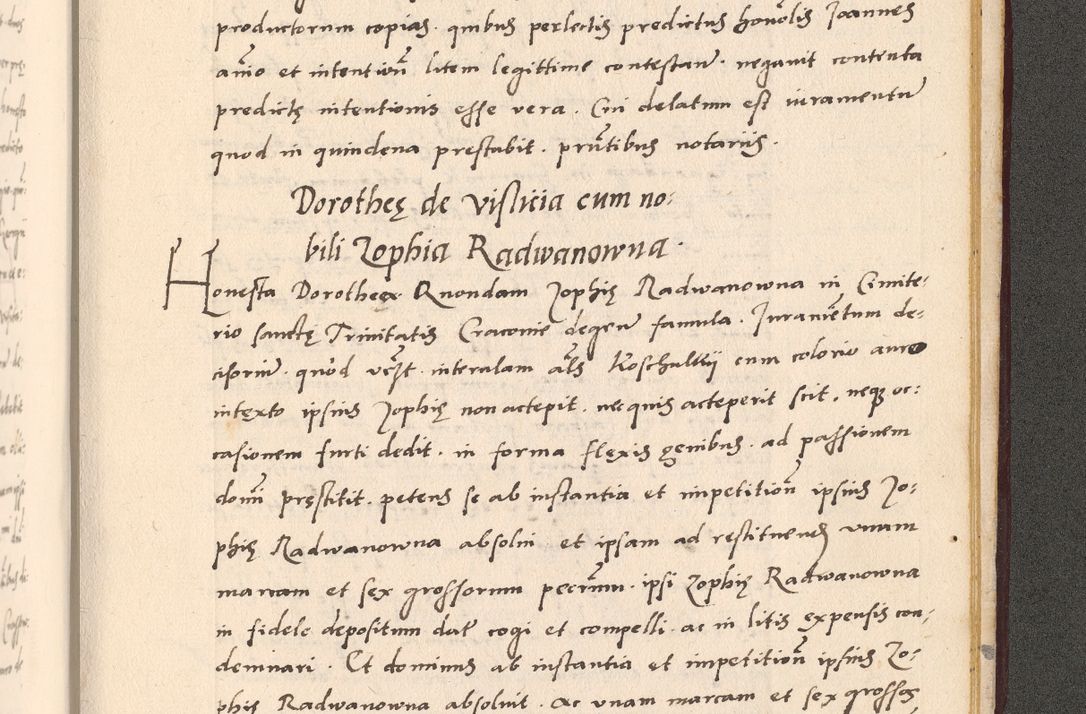 productorum copias. quibus perlectis predictus honolis Joannes
animo et intentione litem legittime contestandi. negavit contenta
predictę intentionis esse vera. Cui delatum est iuramentum
quod in quindena prestabit. presentibus notariis.
Dorotheę de Visticia cum no:
bili Zophia Radwanowna.
Honesta Dorothea Quondam Zophię Radwanowna in Cimite:
rio sanctę Trinitatis Cracovie degen famula. Juramentum de:
cisorium. quod interulam als Koschulkij cum colorio aureo
intexto ipsius Zophię non accepit. nec quis acceperit scit. neque oc:
casionem furti dedit. in forma flexis genibus. ad passionem
domini pręstitit. petens se ab instantia et impetitione ipsius Zo:
phię Radwanowna absolvi et ipsam ad restituendum unam
marcam et sex grossorum pecunium. ipsi Zophię Radwanowna
in fidele depositum dat cogi et compelli. ac in litis expensis con:
demnari. Et dominus ab instantia et impetitione ipsius Zo:
phię Radwanowna absolvit. Ac unam marcam et sex grossos